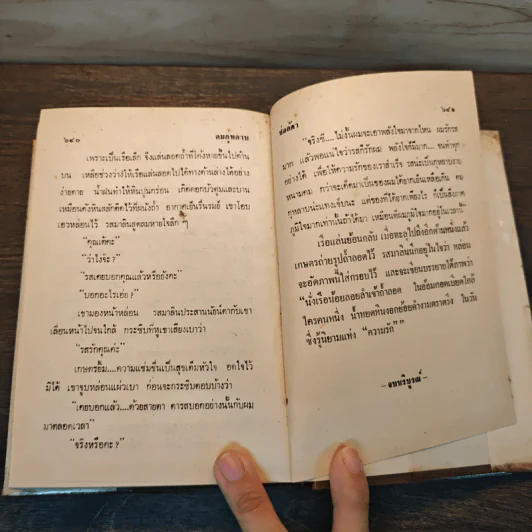 ๖๔๐
ดมกุหลาบ
เพราะเป็นเรือเล็ก จึงแล่นลอดถ้ำที่โค้งหายขึ้นไปด้าน
บน เหลือช่วงว่างให้เรือแล่นลอดไปได้ทางด้านล่างได้อย่าง
ง่ายดาย น้ำฝนทำให้หินปูนกร่อน เกิดดอกบัวตูมและบาน
เหมือนดังหินสลักติดไว้ที่ผนังถ้ำ อากาศเย็นรื่นรมย์ เขาโอบ
เอวหล่อนไว้ รสมาลินสูดลมหายใจลึก ๆ
"คุณเต้คะ"
"ว่าไงจ๊ะ?"
"รสเคยบอกคุณแล้วหรือยังคะ"
"บอกอะไรเอ่ย?"
เขามองหน้าหล่อน รสมาลินประสานนัยน์ตากับเขา
เลื่อนหน้าไปจนใกล้ กระซิบที่หูเขาเสียงเบาว่า
"รสรักคุณค่ะ"
เกษตรยิ้ม....ความแช่มชื่นเป็นสุขเต็มหัวใจ อดใจไว้
มิได้ เขาจูบหล่อนแผ่วเบา ก่อนจะกระซิบตอบบ้างว่า
"เคยบอกแล้ว....ด้วยสายตา ตารสบอกอย่างนั้นกับผม
มาตลอดเวลา"
"จริงหรือคะ?"
ช่อลัดา
๖๔๑
"จริงซี....ไม่งั้นผมจะเอาพลังใจมาจากไหน ผมรักรส
มาก แล้วพอแน่ใจว่ารสก็รักผม พลังใจก็มีมาก...จนทำทุก
อย่างได้ เพื่อให้ความรักของเราสำเร็จ รสน่ะเป็นกุหลาบงาม
หนามคม กว่าจะเด็ดมาเป็นของผมได้ยากเย็นเหลือเกิน ดม
กุหลาบน่ะจะแทงเจ็บนะ แต่ของที่ได้ยากเพียงไร ก็เป็นสิ่งภาค
ภูมิใจมากเท่านั้นถ้าได้มา เหมือนที่ผมภูมิใจมากอยู่ในเวลานี้"
เรือแล่นย้อนกลับ เมื่อทะลุไปถึงอีกด้านหนึ่งแล้ว
เกษตรถ่ายรูปถ้ำลอดไว้ รสมาลินนึกอยู่ในใจว่า หล่อน
จะอัดภาพนี้ใส่กรอบไว้ และจะเขียนบรรยายใต้ภาพว่า
"นั่งเรือน้อยลอยลำเข้าถ้ำลอด ในอ้อมกอดเบียดใกล้
ใครคนหนึ่ง น้ำหยดหินงอกย้อยค้างงามตราตรึง ในวัน
ซึ่งรู้นิยามแห่ง "ความรัก""
-จบบริบูรณ์-